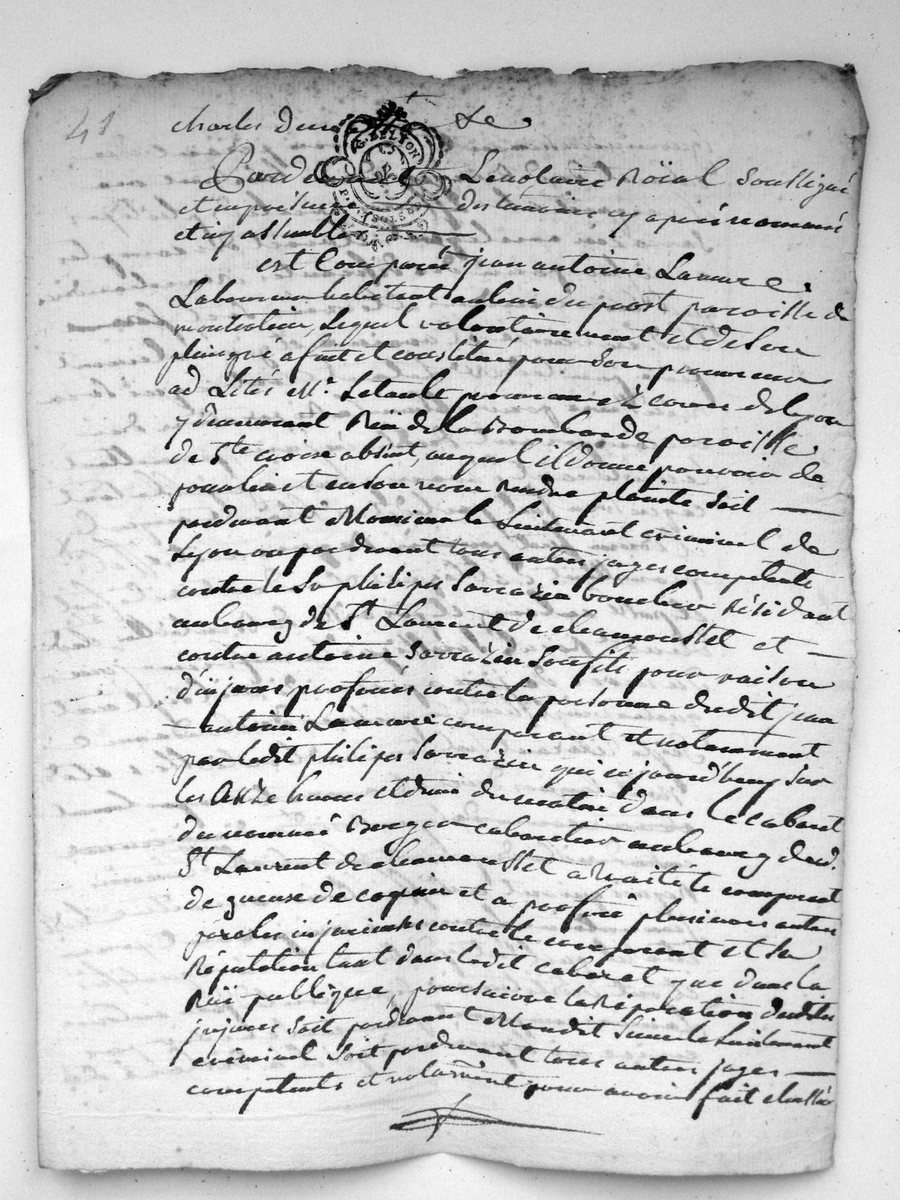 41
charles de
G. DE LYON
Pardevant Le notaire Roïal soussigné
et en présence des temoins cy après nommés
et cy assemblés
est Comparû jean antoine Lamure
Laboureur habitant au lieu du post paroisse de
montrotier, Lequel volontairement et de son
plein gré a fait et constitué pour son procureur
ad Lites Mr. Letault procureur ez cours de lyon
y demeurant Rüe de la Bombarde paroisse
de Ste croise absent, auquel il donne pouvoir de
pour lui et en son nom Rendre plainte soit
pardevant Monsieur le Lieutenant criminel de
Lyon ou pardevant tous autres juges competents
contre le Sr philipe Sarrazin boucher Résidant
au bourg de St Laurent de chamousset et
contre antoine Sarrazin son fils pour raison
d'injures proferés contre la personne dudit jean
antoine Lamure comparant et notamment
par ledit philipe Sarrazin qui cejourd'huy sur
les onze heures et demi du matin dans le cabaret
du nommé cabaretier au bourg dud.
St Laurent de chamousset a traité le comparant
de gueuse de coquin et a proferé plusieurs autres
paroles injurieuses contre le comparant et sa
Réputation tant dans ledit cabaret que dans la
Rüe publique, poursuivre la Réparation desdites
injures soit pardevant Mondit Sieur le Lieutenant
criminel soit pardevant tous autres juges
competents et notamment pour avoir fait